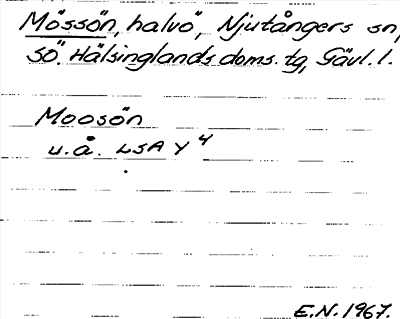 Mössön, halvö, Njutångers sn,
SÖ. Hälsinglands doms. tg, Gävl. l.
Moosön
u.å. LSA Y 4
E.N. 1967.